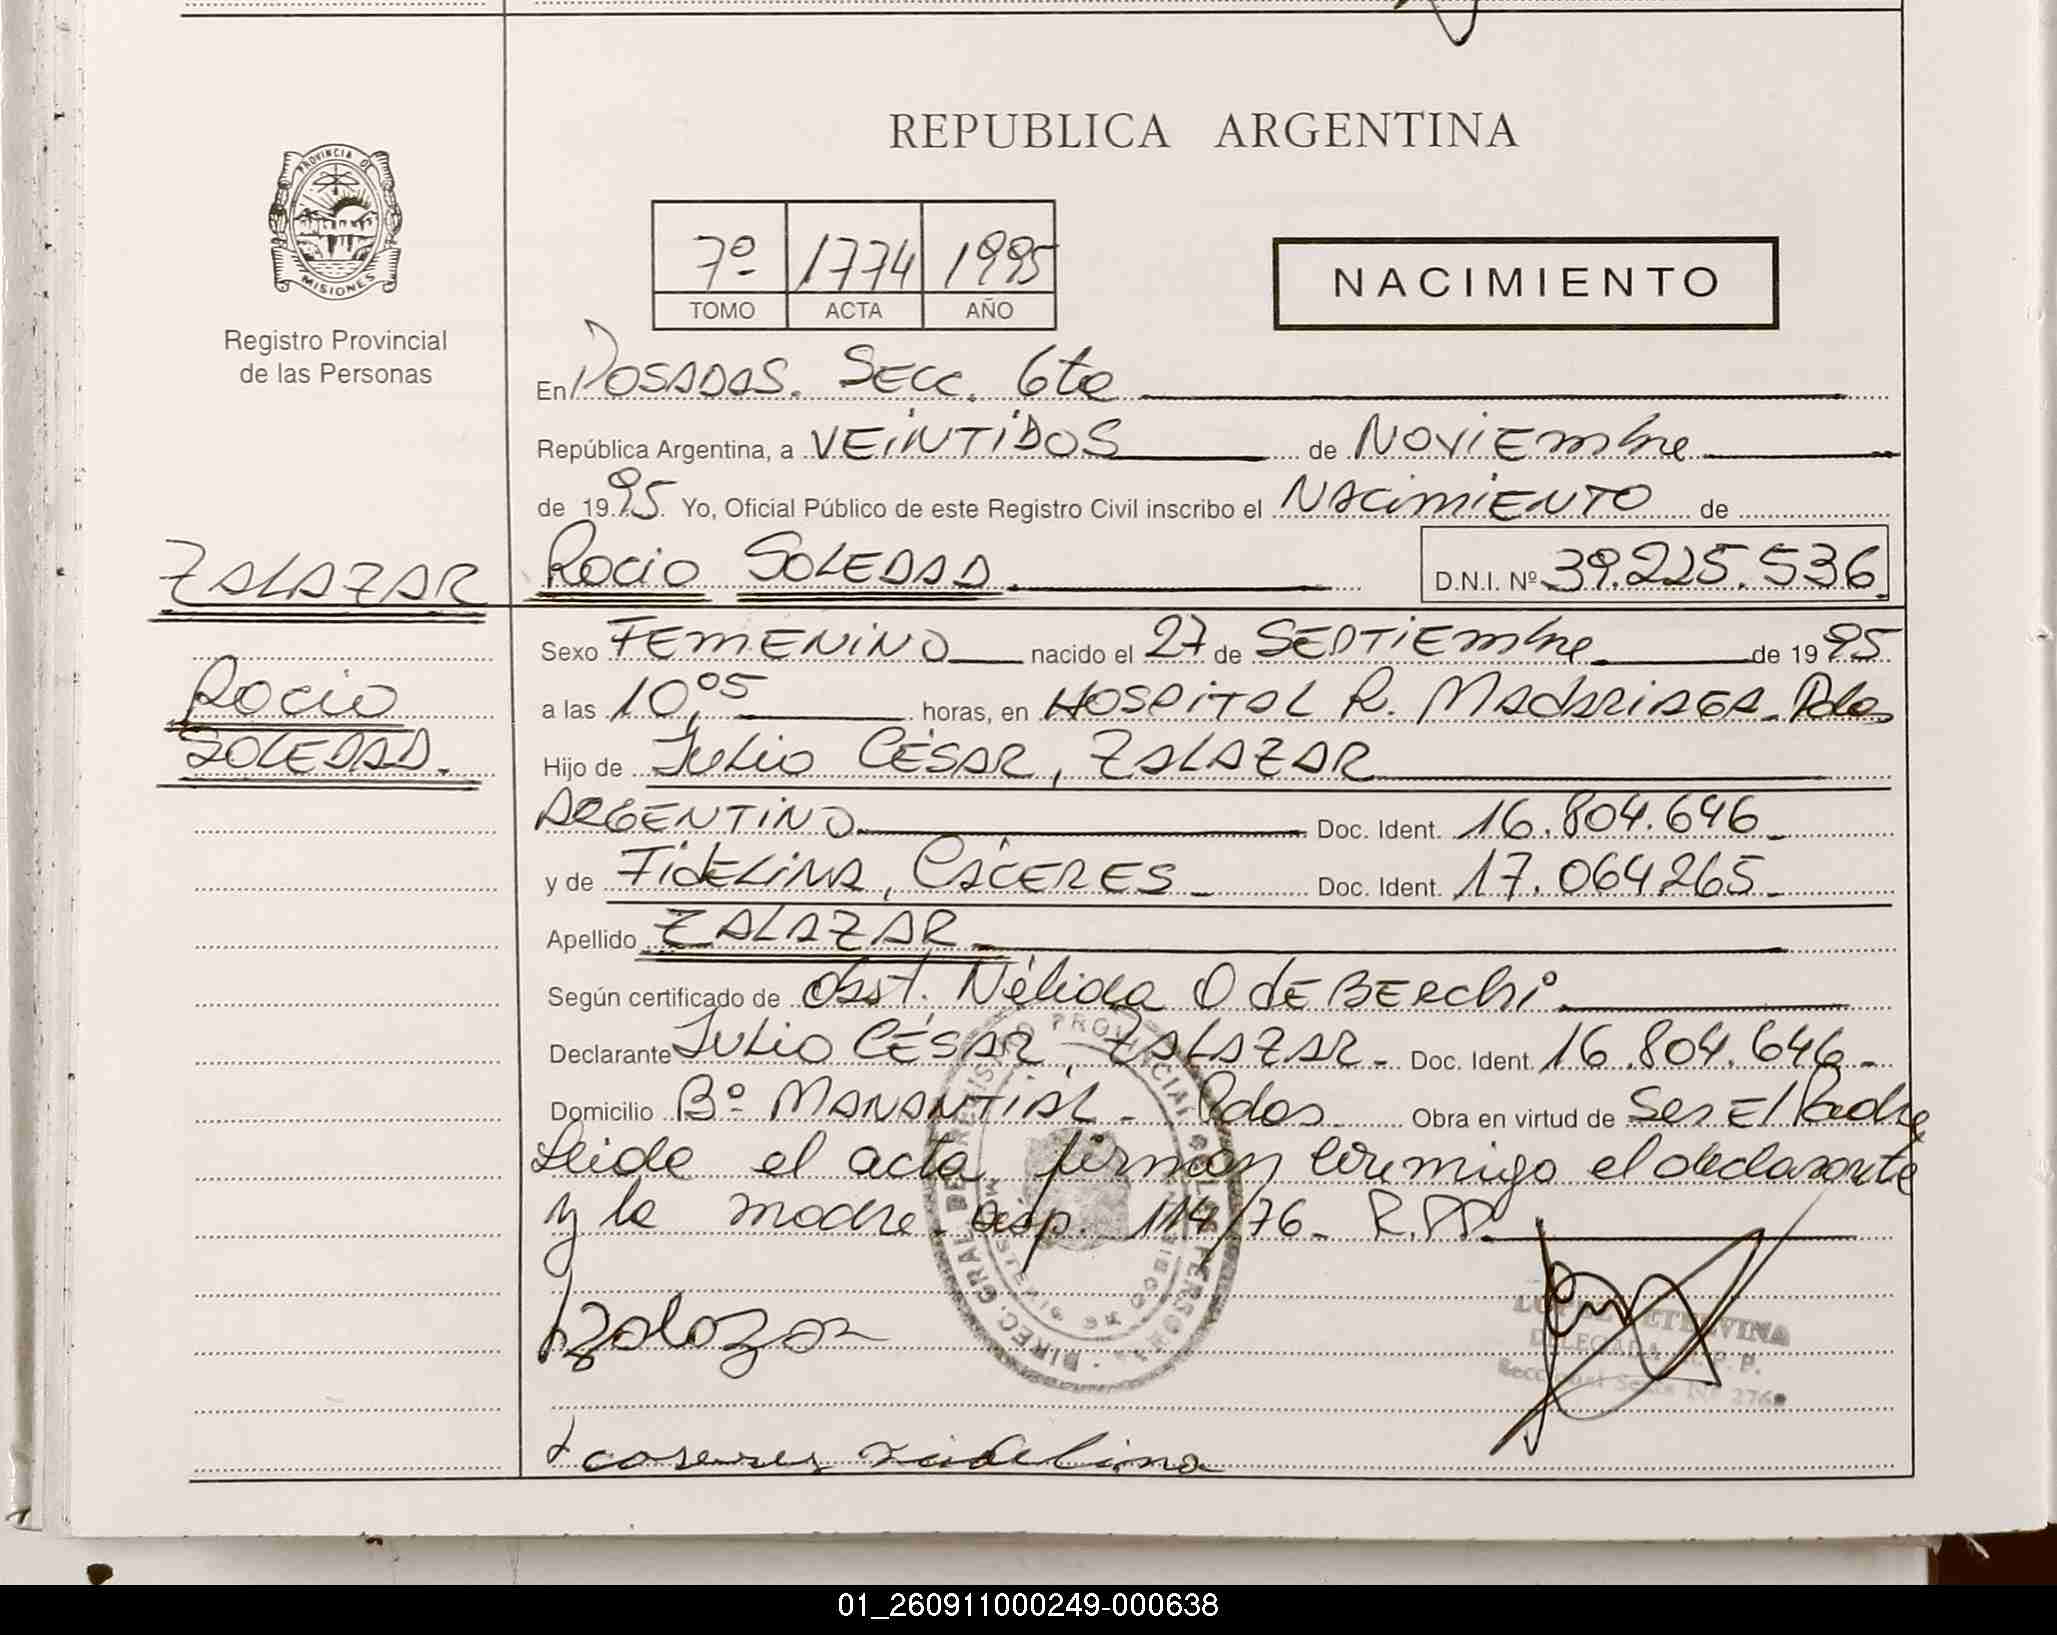 REPUBLICA ARGENTINA
PROVINCIA DE
MISIONES
Registro Provincial
de las Personas
7º 1774 1995
TOMO ACTA AÑO
NACIMIENTO
En POSADAS. Secc. 6ta
República Argentina, a VEINTIDOS de Noviembre
de 1995. Yo, Oficial Público de este Registro Civil inscribo el NACIMIENTO de
ZALAZAR Rocio SOLEDAD. D.N.I. Nº 39.225.536
Sexo FEMENINO nacido el 27 de SEPTIEMbre de 1995
Rocio
a las 10,05 horas, en HOSPITAL R. MADARIAGA - Pdas
SOLEDAD.
Hijo de Julio CÉSAR, ZALAZAR
ARGENTINO Doc. Ident. 16.804.646-
y de FIDELINA, CÁCERES - Doc. Ident. 17.064265-
Apellido ZALAZAR
Según certificado de Obst. Nélida O de BERChi
Declarante Julio CÉSAR, ZALAZAR - Doc. Ident. 16.804.646-
Domicilio Bº MANANTIAL - Pdas. Obra en virtud de Ser El Padre
Leida el acta firman conmigo el declarante
y la madre - disp. 114/76 - R.PP.
DIREC. GRAL DE REGISTRO PROVINCIAL DE LAS PERSONAS
MINISTERIO DE GOBIERNO
Zalazar
DELEGADA R. P. P.
Seccional Sexta Nº 276
caseres xidelina
01_260911000249-000638